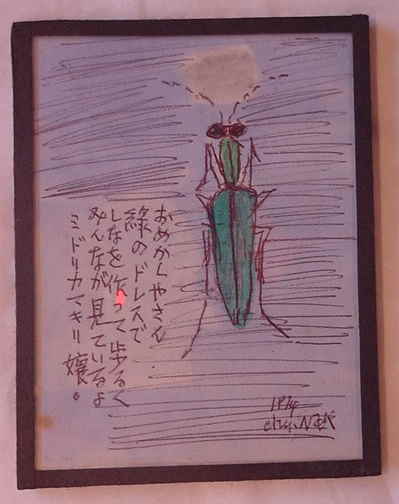 おめかしやさん
緑のドレスで
しなを作って歩るく
みんなが見ているよ
ミドリカマキリ嬢。